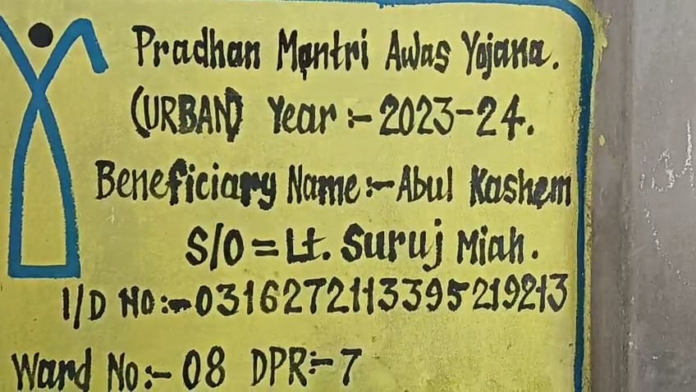 Pradhan Mantri Awas Yojana.
(URBAN) Year :- 2023-24.
Beneficiary Name :- Abul Kashem
S/O = Lt. Suruj Miah.
I/D No :- 0316272113395219213
Ward No :- 08 DPR :- 7